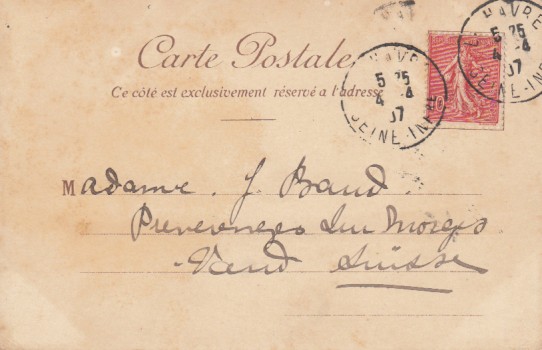 Carte Postale
Ce côté est exclusivement réservé à l'adresse
HAVRE
5 25
4 -4
07
SEINE-INF
HAVRE
5 25
4 -4
07
SEINE-IN
Madame J. Baud
Preverenges sur Morges
Vaud Suisse